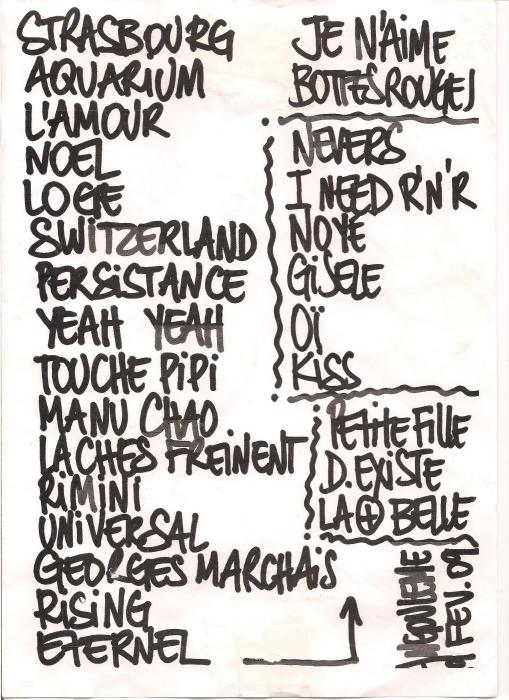 STRASBOURG
AQUARIUM
L'AMOUR
NOEL
LOGE
SWITZERLAND
PERSISTANCE
YEAH YEAH
TOUCHE PIPI
MANU CHAO
LACHES FREINENT
RIMINI
UNIVERSAL
GEORGES MARCHAIS
RISING
ETERNEL
JE N'AIME
BOTTES ROUGES
NEVERS
I NEED R'N'R
NOYÉ
GISELE
OÏ
KISS
PETITE FILLE
D. EXISTE
LA + BELLE
FEV. 09